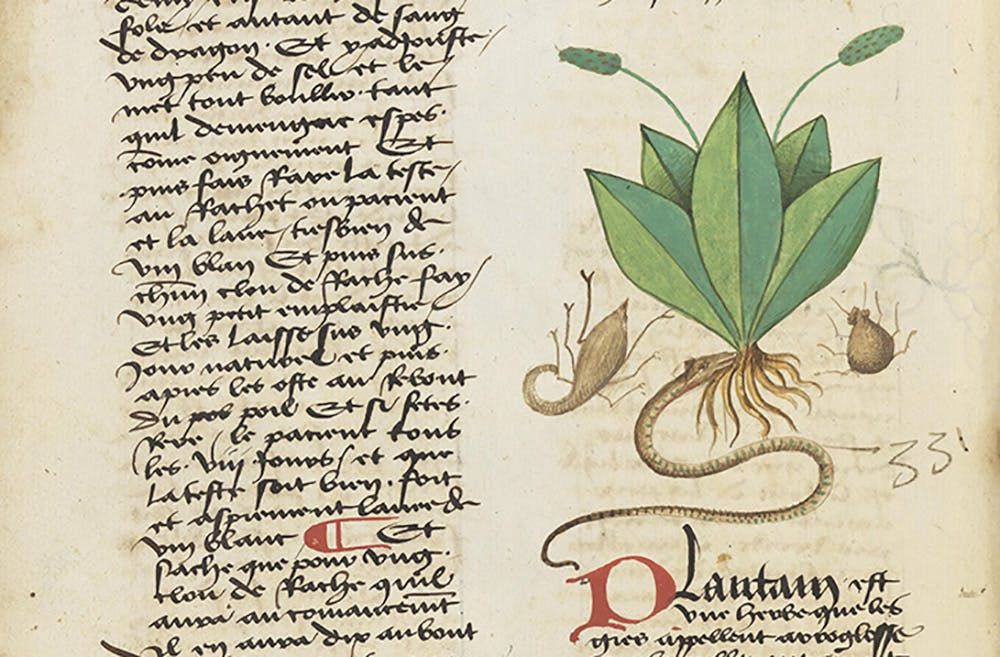 fole et autant de sang
de dragon. Et y adjouste
ung peu de sel et le
met tout boullir. tant
quil espes.
come oignement Et
puis fais Rare la teste
au Rachet ou pacient
et la lave tresbien de
vin blan Et puis sus.
chun clou de Rache fay
ung petit emplaistre
Et les laisse sus ung.
Jour naturel et puis.
apres les oste au Rebout
du poil Et si fetes.
Rere le pacient tous
les. viij Jours et que
la teste soit bien. fort
et aspiement lavee de
vin blanc Et
sache que pour ung.
clou de Rache quil
aura au comancemt
il en aura dix au bout
33
Plantain est
une herbe que les
gies appellent arroglosse